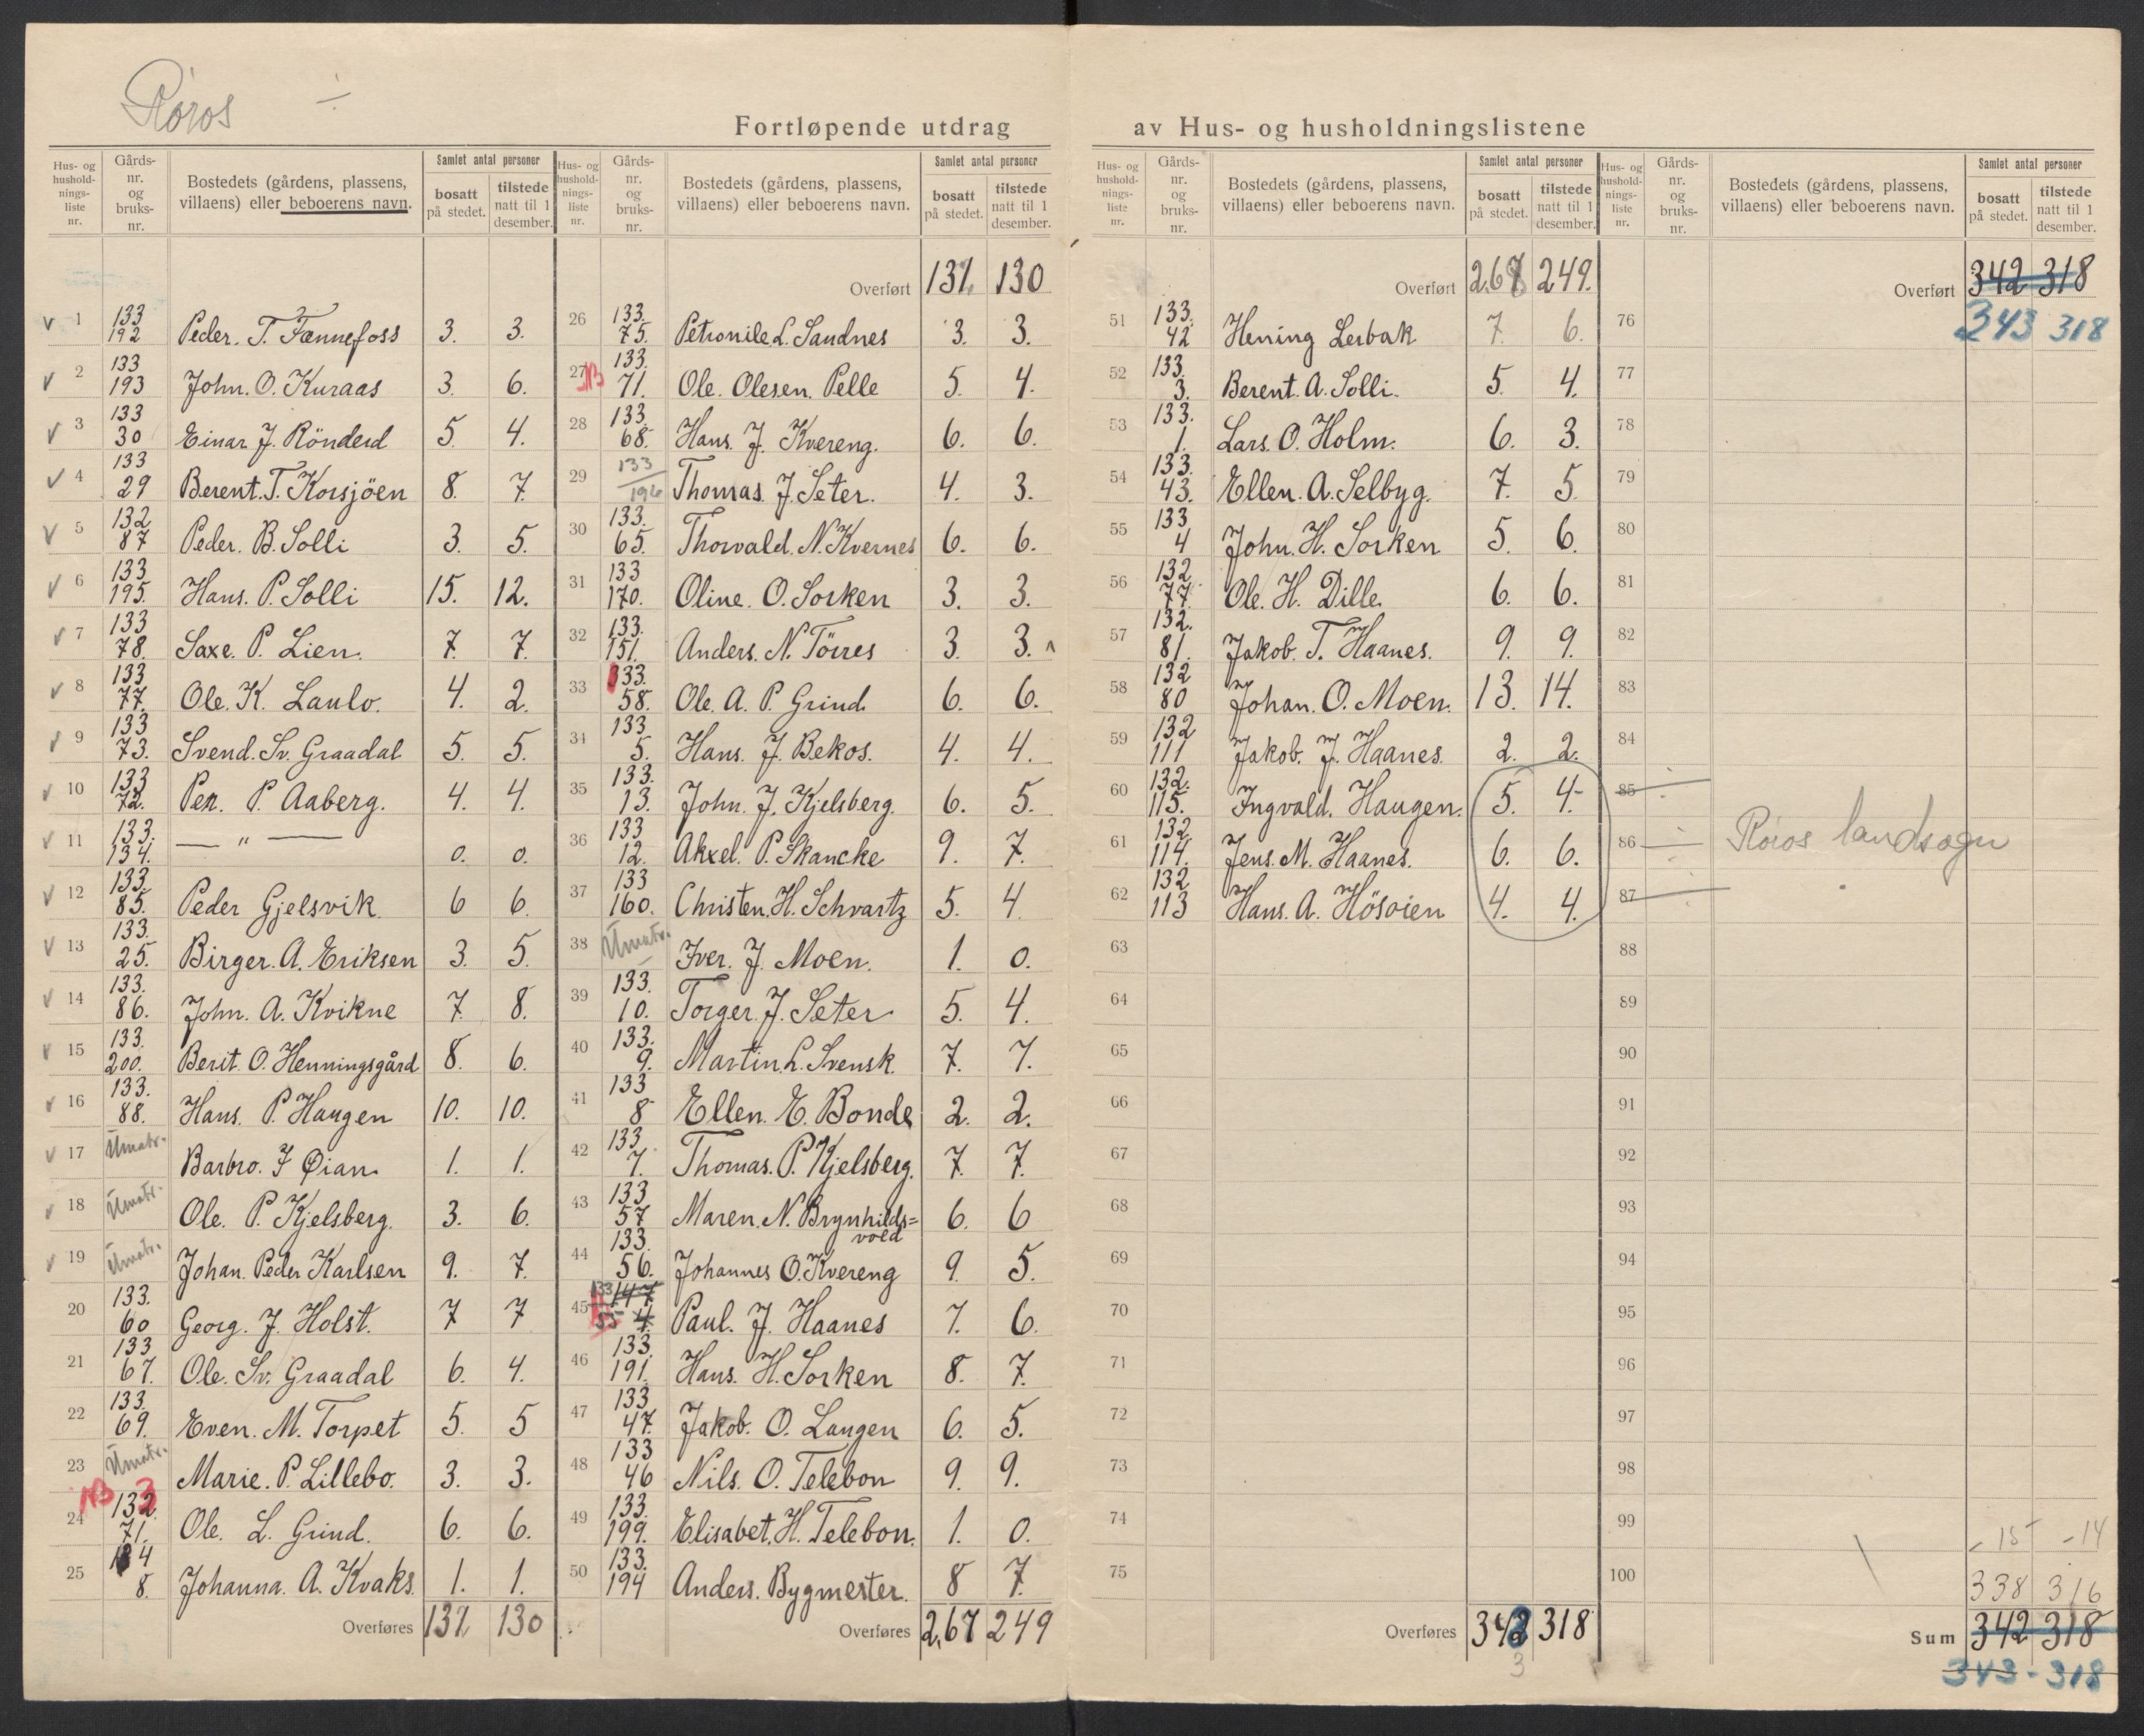 Røros ÷
Fortløpende utdrag av Hus- og husholdningslistene
Hus- og husholdnings-liste nr. | Gårds-nr. og bruks-nr. | Bostedets (gårdens, plassens, villaens) eller beboerens navn. | Samlet antal personer | bosatt på stedet. | tilstede natt til 1 desember.
1 133 192 Peder. T. Fænnefoss 3. 3.
2 133 193 John. O. Kuraas 3. 6.
3 133 30 Einar J. Rönderd 5. 4.
4 133 29 Berent. T. Korsjöen 8. 7.
5 132 87 Peder. B. Solli 3. 5.
6 133 195. Hans. P. Solli 15. 12.
7 133 78. Saxe. P. Lien. 7. 7.
8 133 77. Ole. K. Laulo. 4. 2.
9 133 73. Svend. Sv. Graadal 5. 5.
10 133 72. Per. P. Aaberg. 4. 4.
11 133. 134. — " — 0. 0.
12 133. 85. Peder Gjelsvik. 6 6.
13 133. 25. Birger. A. Eriksen 3. 5.
14 133. 86. John. A. Kvikne 7. 8.
15 133. 200. Berit. O. Henningsgård 8. 6.
16 133. 88. Hans. P. Haugen 10. 10.
17 Umatr. Barbro. J Øian. 1. 1.
18 Umatr. Ole. P. Kjelsberg. 3. 6.
19 Umatr. Johan. Peder Karlsen 9. 7.
20 133. 60 Georg. J. Holst. 7 7
21 133 67. Ole. Sv. Graadal 6. 4.
22 133. 69. Even. M. Torpet 5. 5
23 Umatr. Marie. P. Lillebo. 3. 3.
NB 3
24 132. 71. Ole. L. Grind. 6. 6.
25 134 8. Johanna. A. Kvaks. 1. 1.
Overføres 132 130
Hus- og husholdnings-liste nr. | Gårds-nr. og bruks-nr. | Bostedets (gårdens, plassens, villaens) eller beboerens navn. | Samlet antal personer | bosatt på stedet. | tilstede natt til 1 desember.
Overført 131. 130
26 133. 75. Petronile L. Sandnes 3. 3.
27 NB 133. 71. Ole. Olesen. Pelle 5. 4.
28 133. 68. Hans. J. Kvereng. 6. 6.
29 133 196 Thomas. J. Seter. 4. 3.
30 133. 65. Thorvald. N. Kvernes 6. 6.
31 133 170. Oline. O. Sorken 3. 3.
32 133. 151. Anders. N. Törres 3. 3.
33 133. 58. Ole. A. P. Grind. 6. 6.
34 133 5. Hans. J. Bekos. 4. 4.
35 133. 13. John. J. Kjelsberg. 6. 5.
36 133 12. Akxel. P. Skancke 9. 7.
37 133 160. Christen. H. Schvartz 5. 4.
38 Umatr. Iver. J. Moen. 1. 0.
39 133. 10. Torger. J. Seter 5. 4.
40 133. 9. Martin. L. Svensk. 7. 7.
41 133 8 Ellen. E. Bonde 2. 2.
42 133 7. Thomas. P. Kjelsberg. 7. 7.
43 133 57 Maren. N. Brynhilds=vold 6. 6
44 133. 56. Johannes O. Kvereng 9. 5.
45 133 147 55 4. Paul. J. Haanes 7. 6.
46 133. 191. Hans. H. Sorken 8. 7.
47 133 47. Jakob. O. Langen 6. 5.
48 133 46 Nils. O. Telebon 9. 9.
49 133. 199. Elisabet. H. Telebon. 1. 0.
50 133. 194 Anders. Bygmester. 8 7.
Overføres 267 249
Hus- og husholdnings-liste nr. | Gårds-nr. og bruks-nr. | Bostedets (gårdens, plassens, villaens) eller beboerens navn. | Samlet antal personer | bosatt på stedet. | tilstede natt til 1 desember.
Overført 268 249.
51 133. 42 Hening Lerbak 7. 6.
52 133. 3. Berent. A. Solli. 5. 4.
53 133. 1. Lars. O. Holm. 6. 3.
54 133. 43. Ellen. A. Selbyg. 7. 5.
55 133 4 John. H. Sorken 5. 6.
56 132 77. Ole. H. Dille. 6. 6.
57 132. 81. Jakob. T. Haanes. 9. 9.
58 132 80 Johan. O. Moen. 13. 14.
59 132 111 Jakob. J. Haanes. 2. 2.
60 132. 115. Ingvald. Haugen. 5. 4-
61 132. 114. Jens. M. Haanes. 6. 6.
62 132 113 Hans. A. Hösöien 4. 4.
63
64
65
66
67
68
69
70
71
72
73
74
75
Overføres 342 318
3
Hus- og husholdnings-liste nr. | Gårds-nr. og bruks-nr. | Bostedets (gårdens, plassens, villaens) eller beboerens navn. | Samlet antal personer | bosatt på stedet. | tilstede natt til 1 desember.
Overført 342 318
76 343 318
77
78
79
80
81
82
83
84
85 ÷
86 ÷ Røros landsogn
87 ÷
88
89
90
91
92
93
94
95
96
97
98
99 - 15 - 14
100 338 316
Sum 342 318
343 - 318